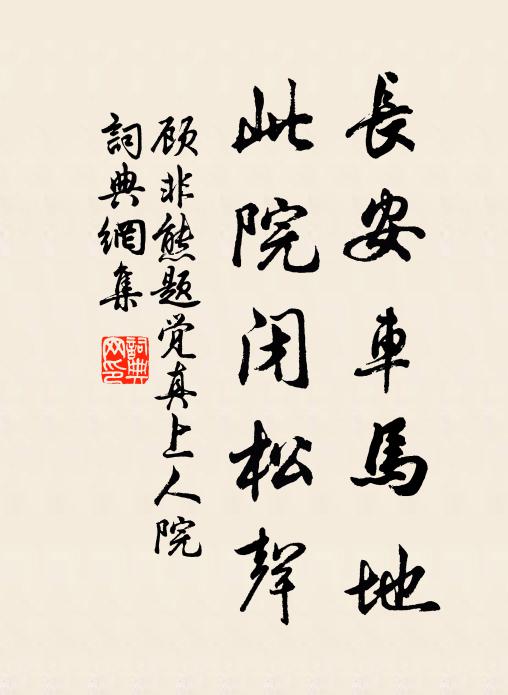 長安車馬地
此院闭松聲
顾非熊题觉真上人院
詞典網集
詞典網印